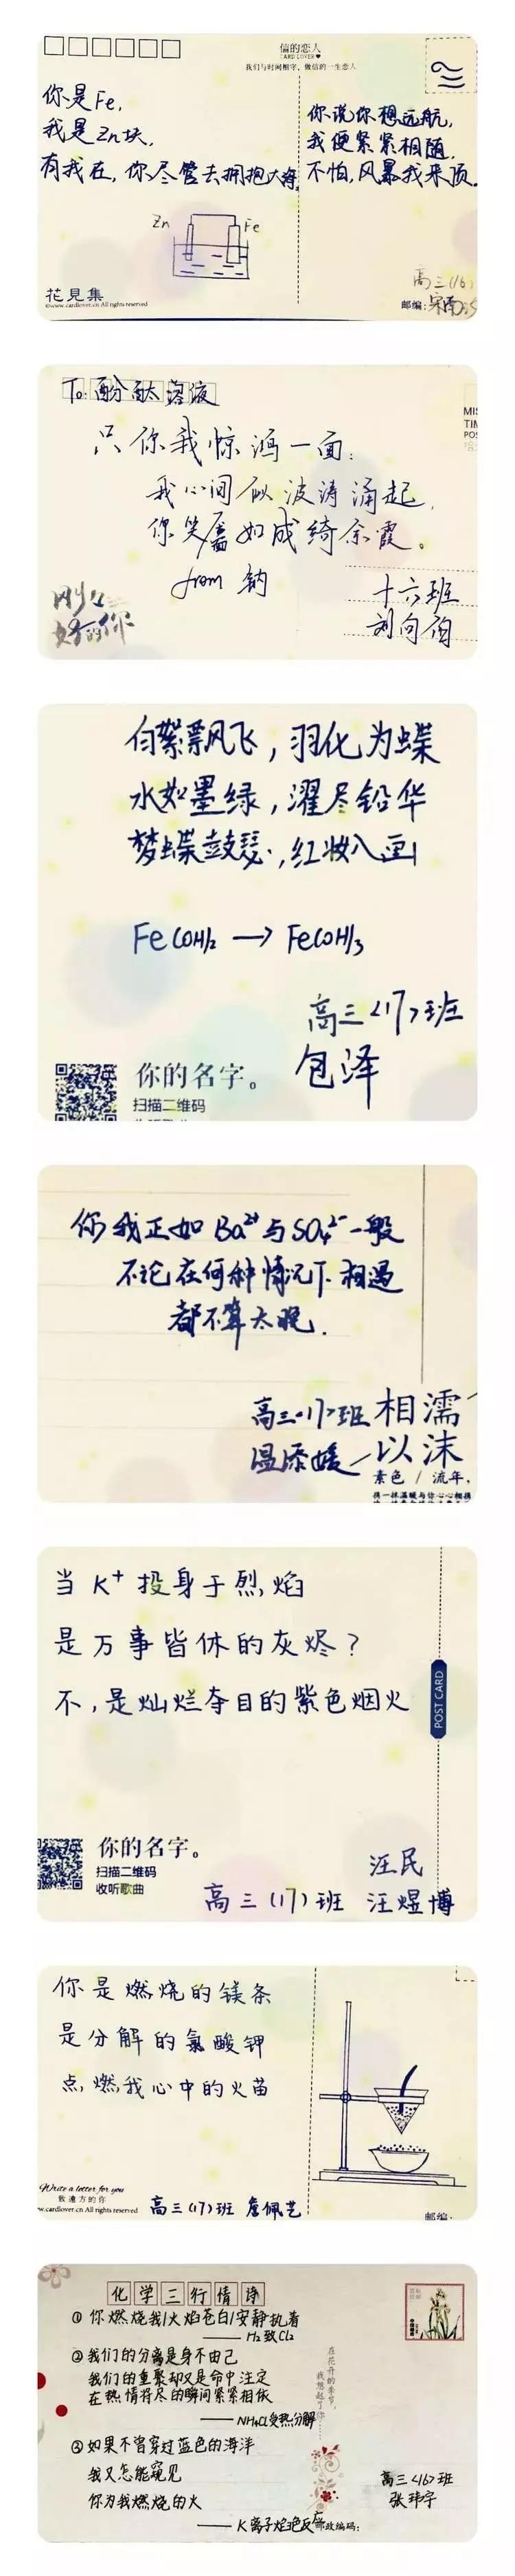 信的恋人
CARD LOVER
我们与时间相守，做信的一生恋人
你是Fe,
我是Zn块,
有我在,你尽管去拥抱大海
你说你想远航,
我便紧紧相随,
不怕,风暴我来顶.
Zn
Fe
花見集
©www.cardlover.cn All rights reserved
高三(16)
邮编:
To:酚酞溶液
只你我惊鸿一面:
我心间似波涛涌起,
你笑靥如成绮余霞。
from 钠
刚好
好的你
十六班
刘向前
MIS
TIM
POS
白絮飘飞,羽化为蝶
水如墨绿,濯尽铅华
梦蝶鼓瑟,红妆入画
Fe(OH)2 → Fe(OH)3
高三<17>班
包泽
你的名字。
扫描二维码
你我正如Ba²⁺与SO₄²⁻一般
不论在何种情况下相遇
都不算太晚.
高三<17>班
温添媛
相濡
以沫
素色 / 流年,
当K⁺投身于烈焰
是万事皆休的灰烬?
不,是灿烂夺目的紫色烟火
POST CARD
你的名字。
扫描二维码
收听歌曲
汪民
高三(17)班 汪煜博
你是燃烧的镁条
是分解的氯酸钾
点燃我心中的火苗
Write a letter for you
致遠方的你
w.cardlover.cn All rights reserved
高三(17)班 詹佩艺
邮编:
化学三行情诗
①你燃烧我/火焰苍白/安静执着
——H₂致Cl₂
②我们的分离是身不由己
我们的重聚却又是命中注定
在热情将尽的瞬间紧紧相依
——NH₄Cl受热分解
③如果不曾穿过蓝色的海洋
我又怎能窥见
你为我燃烧的火
——K离子焰色反应
在花开的季节,
我想起了你
高三<16>班
张玮宇
邮政编码: